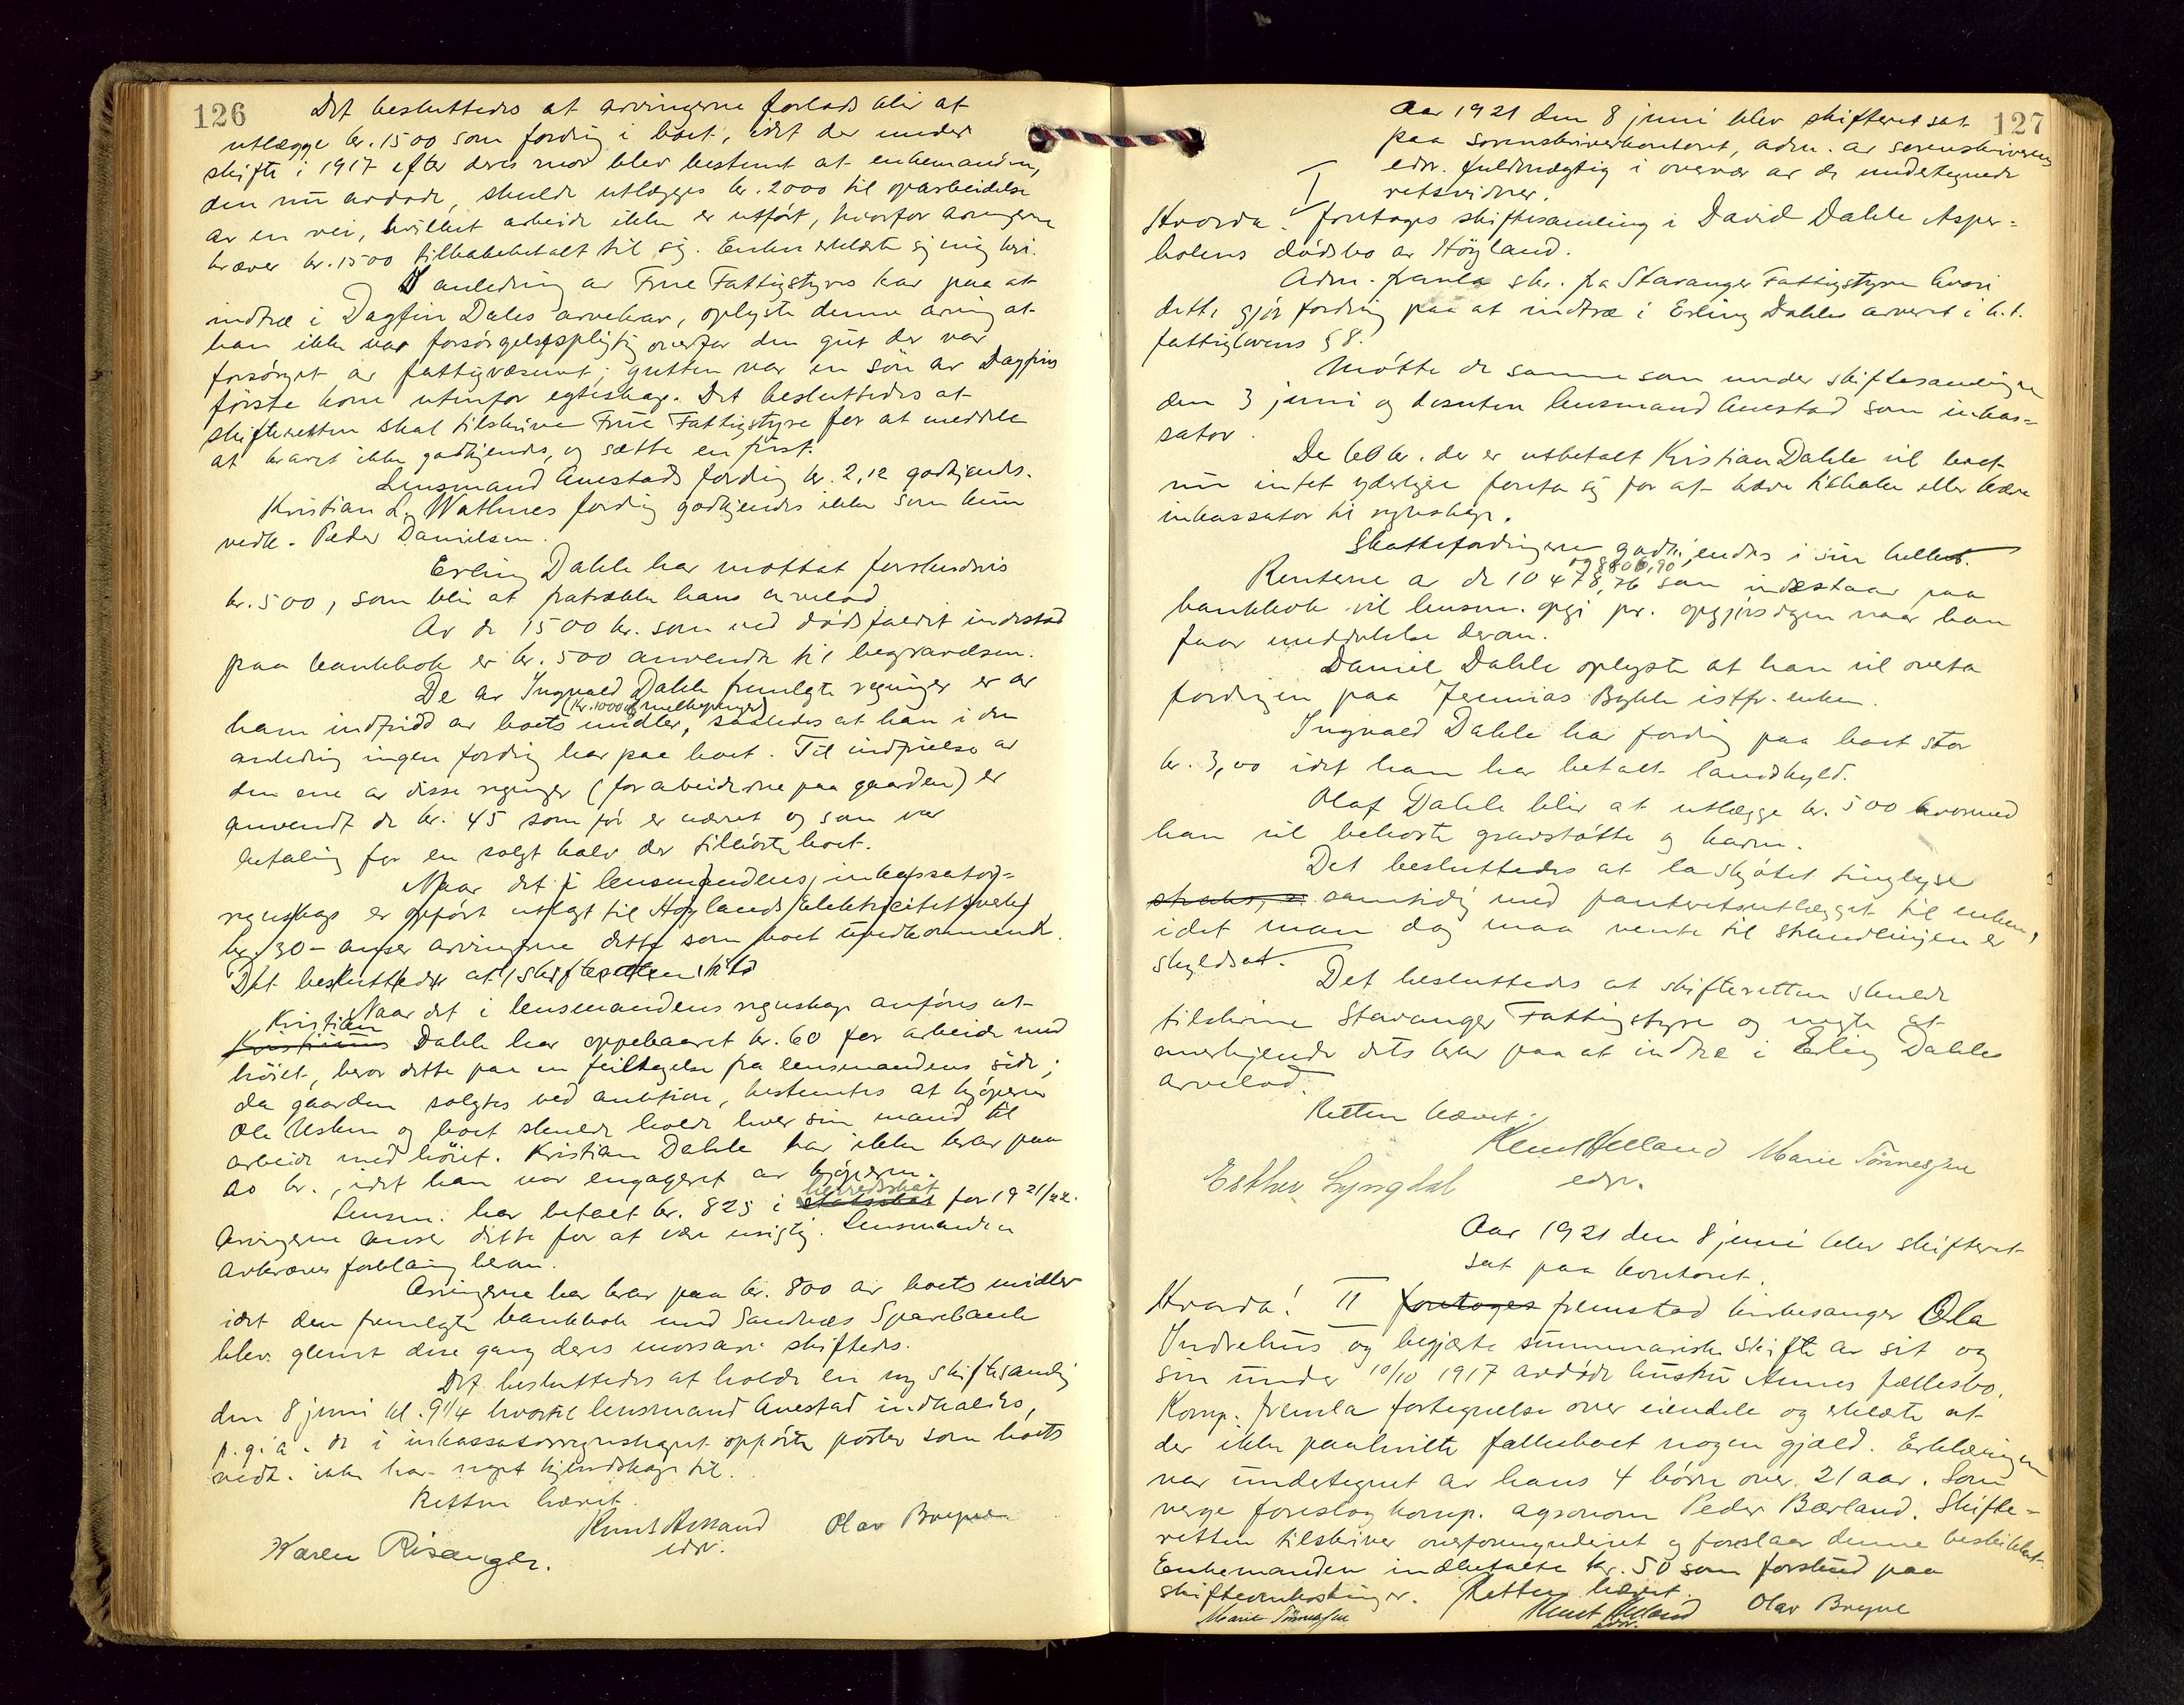 126
Det besluttedes at arvingerne forlods blir at
utlægge kr. 1500 som fordring i boet, idet der under
skifte i 1917 efter deres mor blev bestemt at enkemanden,
den nu avdøde, skulde utlægge kr. 2000 til oparbeidelse
av en vei, hvilket arbeide ikke er utført, hvorfor arvingerne
kræver kr. 1500 tilbakebetalt til sig. Enken erklærte sig enig heri.
I anledning av Frue Fattigstyres krav paa at
indtræ i Dagfin Dales arvekrav, oplyste denne arving at
han ikke var forsørgelsespligtig overfor den gut der var
forsørget av fattigvæsenet; gutten var en søn av Dagfins
første kone utenfor egteskap. Det besluttedes at
skifteretten skal tilskrive Frue Fattigstyre for at meddele
at kravet ikke godkjendes, og sætte en frist.
Lensmand Auestads fordring kr. 2,12 godkjendes.
Kristian L. Wathnes fordring godkjendes ikke som kun
vedk. Peder Danielsen.
Erling Dahle har mottat forskudsvis
kr. 500, som blir at fratrække hans arvelod.
Av de 1500 kr. som ved dødsfaldet indestod
paa bankbok er kr. 500 anvendt til begravelsen.
De av Ingvald Dahle fremlagte regninger er av
(kr. 1000 og melkepenger)
ham indfridd av boets midler, saaledes at han i den
anledning ingen fordring har paa boet. Til indfrielse av
den ene av disse regninger (for arbeiderne paa gaarden) er
anvendt de kr. 45 som før er nævnt og som var
betaling for en solgt kalv der tilhørte boet.
Naar det i lensmandens inkassator-
regnskap er opført utlagt til Høylands Elektricitetsverk
kr. 30- anser arvingerne dette som boet uvedkommende.
Det besluttedes at skifteretten
Naar det i lensmandens regnskap anføres at
Kristian
Dahle har oppebaaret kr. 60 for arbeide med
høiet, beror dette paa en feiltagelse fra lensmandens side;
da gaarden solgtes ved auktion, bestemtes at kjøperen
Ole Usken og boet skulde holde hver sin mand til
arbeide med høiet. Kristian Dahle har ikke krav paa
60 kr., idet han var engageret av kjøperen.
herredsskat
Lensm. har betalt kr. 825 i statsskat for 1921/22.
Arvingerne anser dette for at være urigtig. Lensmanden
avkræves forklaring herom.
Arvingerne har krav paa kr. 800 av boets midler
idet den fremlagte bankbok med Sandnæs Sparebank
blev glemt den gang deres morsarv skiftedes.
Det besluttedes at holde en ny skiftesamling
den 8 juni kl. 9 1/4 hvortil lensmand Auestad indkaldes,
p. g. a. de i inkassatorregnskapet opførte poster som boets
vedk. ikke har noget kjendskap til.
Retten hævet.
Knut Helland Olav Bryne
edsv.
Karen Risanger.
127
Aar 1921 den 8 juni blev skifteret sat
paa sorenskriverkontoret, adm. av sorenskriverens
edsv. fuldmægtig i overvær av de undertegnede
retsvidner.
I
Hvorda! foretoges skiftesamling i David Dahle Asper-
holens dødsbo av Høyland.
Adm. fremla skr. fra Stavanger Fattigstyre hvori
dette gjør fordring paa at indtræ i Erling Dahles arveret i h. t.
fattiglovens § 8.
Møtte de samme som under skiftesamlingen
den 3 juni og desuten lensmand Auestad som inkas-
sator.
De 60 kr. der er utbetalt Kristian Dahle vil boet
nu intet yderligere foreta sig for at kræve tilbake eller kræve
inkassator til regnskap.
Skattefordringerne godkjendes i sin helhet.
og 8806,90
Renterne av de 10478,76 som indestaar paa
bankbok vil lensm. opgi pr. opgjørsdagen naar han
faar meddelelse derom.
Daniel Dahle oplyste at han vil overta
fordringen paa Jeremias Bykle istf. enken.
Ingvald Dahle har fordring paa boet stor
kr. 3,00 idet han har betalt landskyld.
Olaf Dahle blir at utlægge kr. 500 hvormed
han vil bekoste gravstøtte og karm.
Det besluttedes at la skjøtet tinglyse
straks, og samtidig med panteretsutlægget til enken,
idet man dog maa vente til strandlinjen er
skyldsat.
Det besluttedes at skifteretten skulde
tilskrive Stavanger Fattigstyre og negte at
anerkjende dets krav paa at indtræ i Erling Dahles
arvelod.
Retten hævet.
Knut Helland Marie Tønnessen
Esther Lyngdal edsv.
Aar 1921 den 8 juni blev skifteret
sat paa kontoret.
Hvorda! II foretoges fremstod kirkesanger Ola
Indrehus og begjærte summarisk skifte av sit og
sin under 10/10 1917 avdøde hustru Annes fællesbo.
Komp. fremla fortegnelse over eiendele og erklærte at
der ikke paahvilte fællesboet nogen gjæld. Erklæringen
var undertegnet av hans 4 børn over 21 aar. Som
verge foreslog komp. agronom Peder Bærland. Skifte-
retten tilskriver overformynderiet og foreslaar denne beskikket.
Enkemanden indbetalte kr. 50 som forskud paa
skifteomkostninger. Retten hævet.
Marie Tønnessen Knut Helland Olav Bryne
edsv.